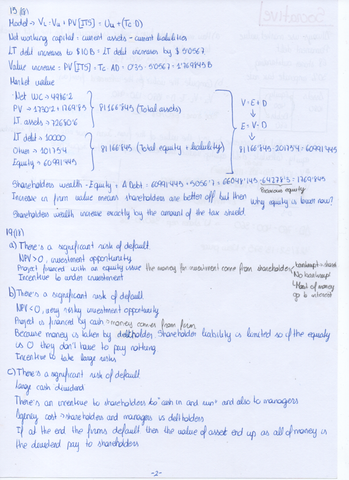 13 (17)
Model → VL = Vu + PV[ITS] = Vu + (Tc D)
Net working capital = current assets - current liabilities
LT debt increases to $10B = LT debt increases by $ 5.0567
Value increase = PV[ITS] = Tc · ΔD = 0'35 · 5.0567 = 1.769845 B
Market value
Net WC → 4986.2
PV → 1750.2 + 1769.85
LT. assets → 72660.6
81.166.845 (Total assets)
V = E + D
LT debt = 10000
Other = 10175.4
Equity = 60991.445
81.166.845 (Total equity + liability)
E = V - D
81.166.845 - 20175.4 = 60991.445
Shareholders wealth - Equity + Δ Debt = 60991.445 + 5056.7 = 66048.145 - 64278.3 = 1769.845
Previous equity
Increase in firm value means shareholders are better off but then why equity is lower now?
Shareholders wealth increase exactly by the amount of the tax shield
a) There's a significant risk of default
NPV > 0, investment opportunity
Project financed with an equity issue the money for investment come from shareholders
No bankrupt
Most of money go to interest
Incentive to under investment
b) There's a significant risk of default
NPV < 0, very risky investment opportunity
Project is financed by cash → money comes from firm
Because money is taken by debtholder. Shareholder liability is limited so if the equity
is 0 they don't have to pay nothing
Incentive to take large risks
c) There's a significant risk of default
Large cash dividend
There's an incentive to shareholders to "cash in and run" and also to managers
Agency cost → shareholders and managers vs debtholders
If at the end the firms default then the value of asset end up as all of money is
the dividend pay to shareholders
-2-